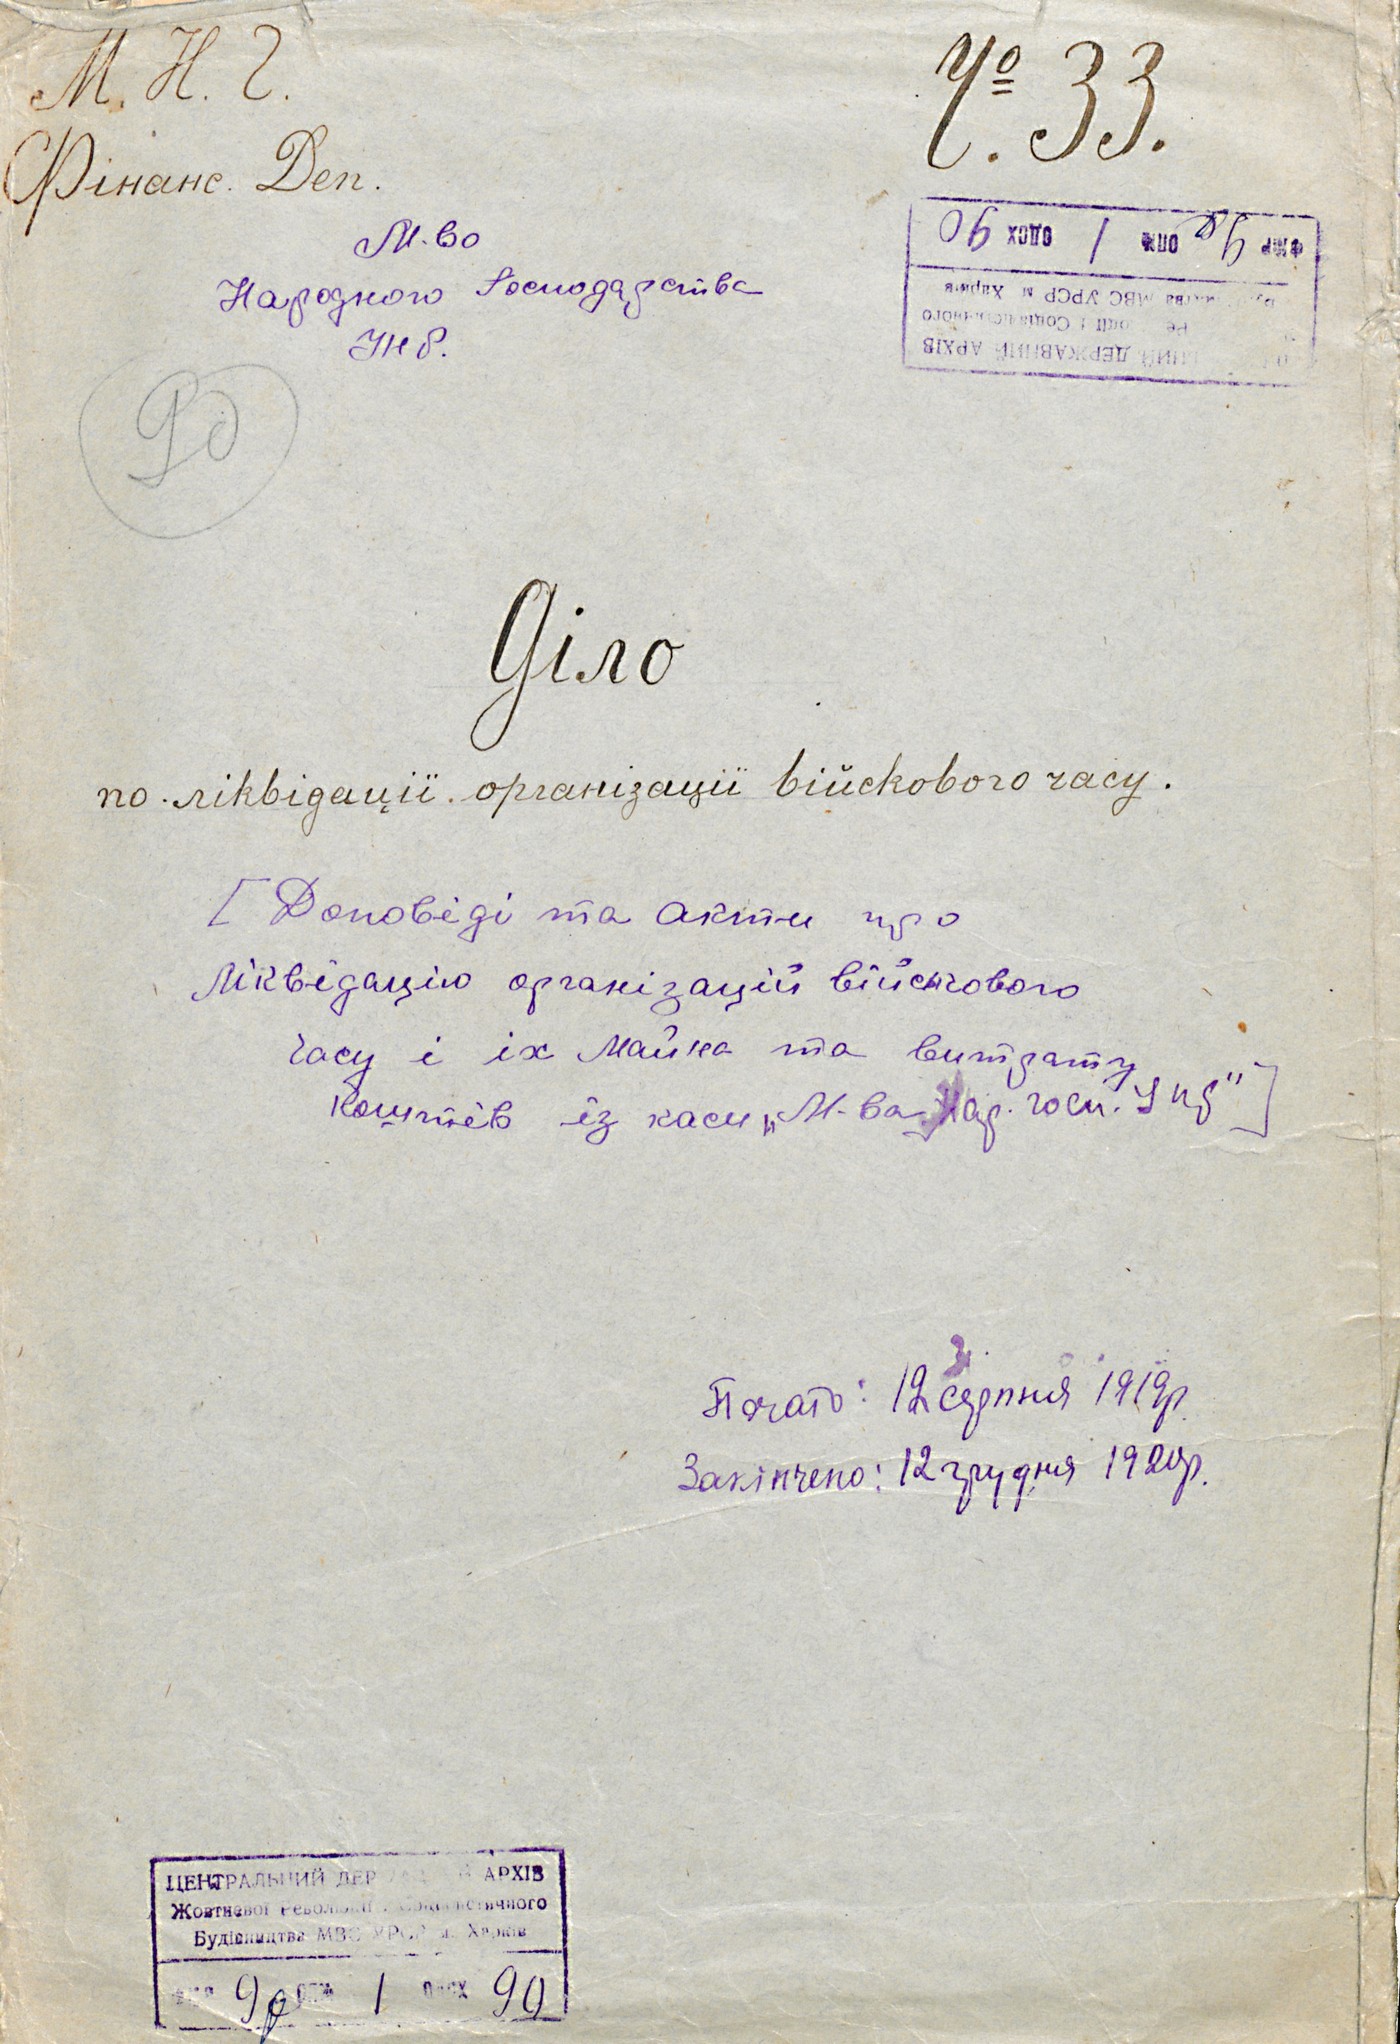 М. Н. Г.
Фінанс. Деп.
Ч⁰. 33.
М-во
Народного Господарства
УНР.
ФМР 9р ОПЖ 1 ОДСХ 90
Будівництва МВС УРСР м Харків
Революції і Соціалістичного
ДЕРЖАВНИЙ АРХІВ
Діло
по ліквідації організації військового часу.
[Доповіді та акти про
ліквідацію організацій військового
часу і іх майна та витрату
коштів із каси „М-ва Нар. госп. УНР"]
Почато: 12 серпня 1919р.
Закінчено: 12 грудня 1920р.
ЦЕНТРАЛЬНИЙ ДЕРЖАВНИЙ АРХІВ
Жовтневої Революції і Соціалістичного
Будівництва МВС УРСР м. Харків
9р ОПЖ 1 ОДСХ 90